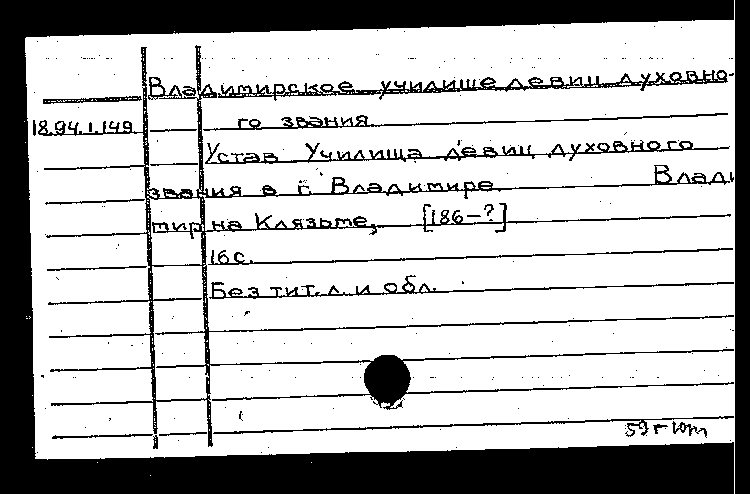 Владимирское училище девиц духовно-
18.94.1.149 го звания.
Устав Училища девиц духовного
звания в г. Владимире. Влади
мир на Клязьме, [186-?]
16 с.
Без тит. л. и обл.
59 г